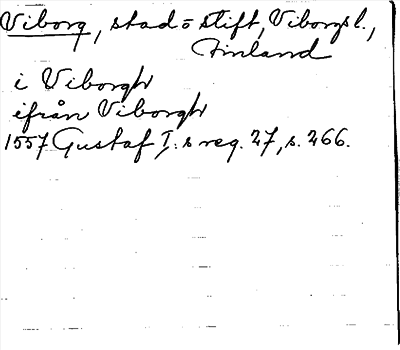 Viborg, stad o stift, Viborgs l.,
Finland
i Viborgh
ifrån Viborgh
1557 Gustaf I:s reg. 27, s. 266.